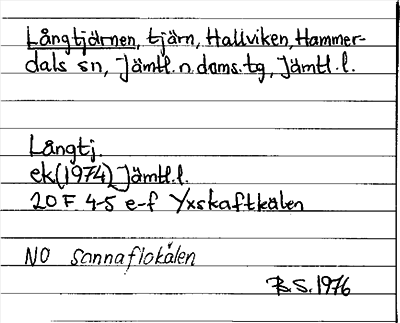 Långtjärnen, tjärn, Hallviken, Hammer-
dals sn, Jämtl. n. doms. tg, Jämtl. l.
Långtj.
ek (1974) Jämtl. l.
20 F 4-5 e-f Yxskaftkälen
NO Sannaflokälen
B.S. 1976